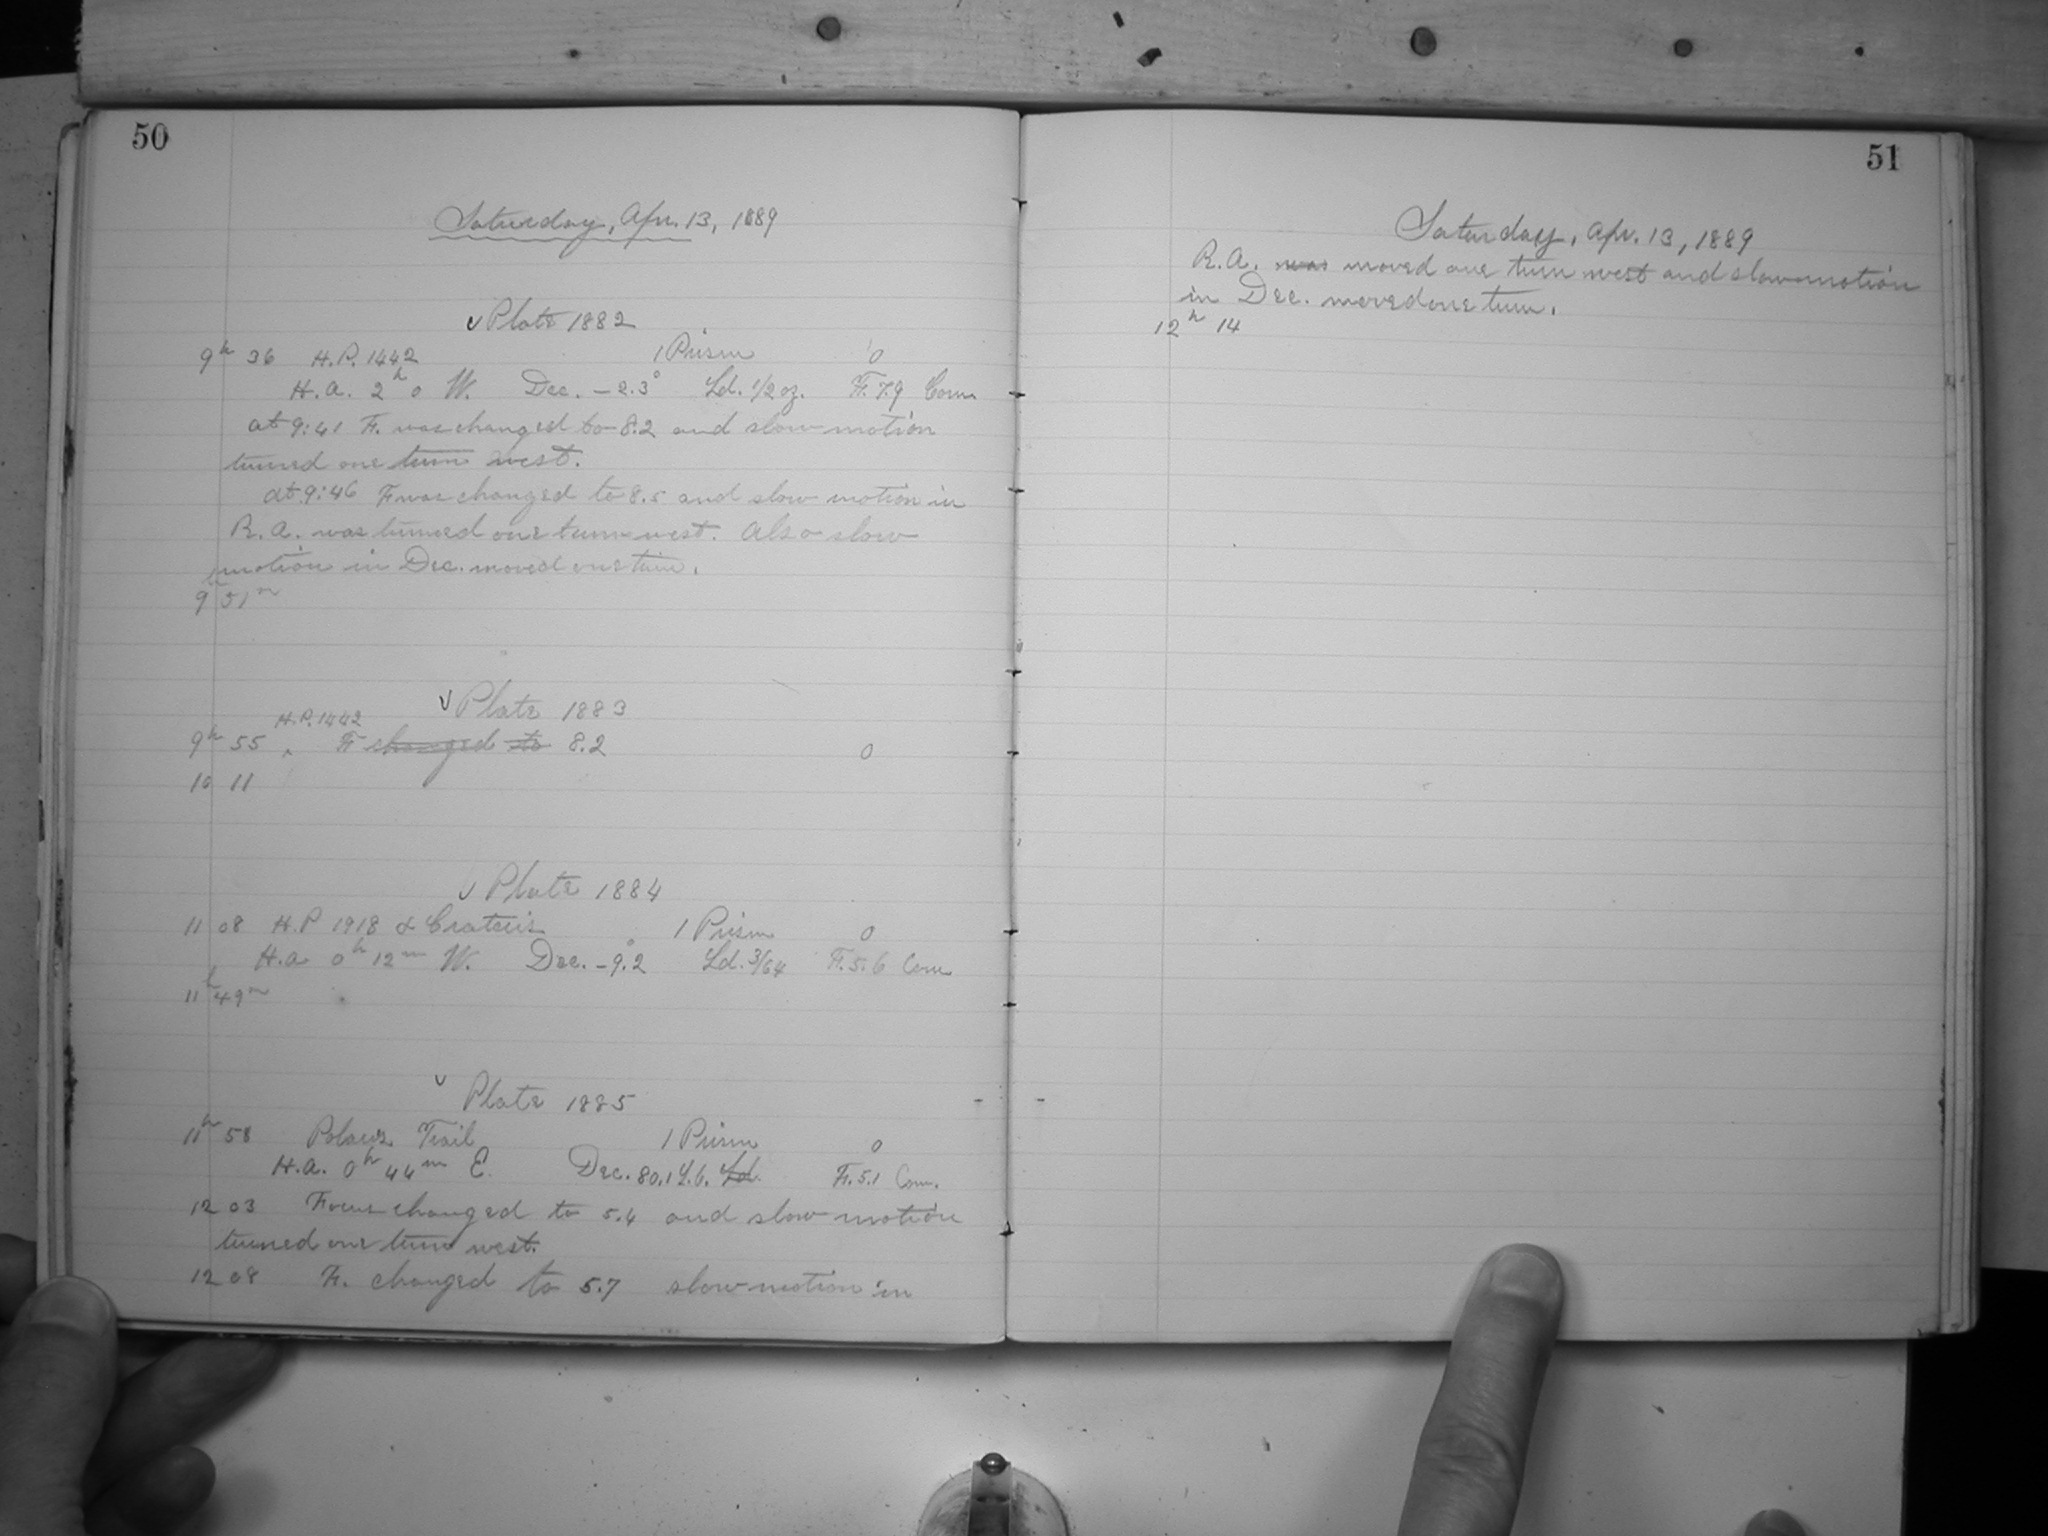 50
Saturday, Apr. 13, 1889
✓ Plate 1882
9h 36 H.P. 1442 1 Prism 0
H.A. 2h 0 W. Dec. -2.3° Ld. 1/2 oz. F. 7.9 Corr.
at 9:41 F. was changed to 8.2 and slow motion
turned one turn west.
at 9:46 F was changed to 8.5 and slow motion in
R.A. was turned one turn west. Also slow
motion in Dec. moved one turn.
9h 51m
✓ Plate 1883
H.P. 1442
9h 55 ^ F changed to 8.2 0
10 11
✓ Plate 1884
11 08 H.P 1918 & Crateris 1 Prism 0
H.A. 0h 12m W. Dec. -9.2° Ld. 3/64 F. 5.6 Corr.
11h 49m
✓ Plate 1885
11h 58 Polaris Trail 1 Prism 0
H.A. 0h 44m E. Dec. 80.1 Ld. F. 5.1 Corr.
12 03 Focus changed to 5.4 and slow motion
turned one turn west.
12 08 F. changed to 5.7 slow motion in
51
Saturday, Apr. 13, 1889
R.A. was moved one turn west and slow motion
in Dec. moved one turn.
12h 14